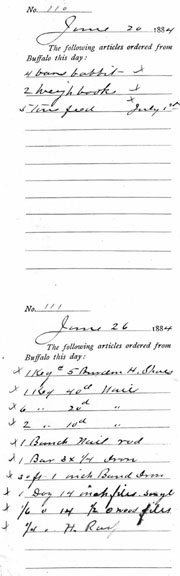 No. 110
June 20 1884
The following articles ordered from
Buffalo this day:
4 bars babbit x
2 weigh books x
5 Tons feed x July 1st
No. 111
June 26 1884
The following articles ordered from
Buffalo this day:
x 1 Keg # 5 Burden H. Shoes
x 1 Keg 40d Nails
x 6 " 20d "
x 2 " 10d "
x 1 Bunch Nail rod
x 1 Bar 3 x 1/4 Iron
x 1 inch Band Iron
x 1 Doz 14 inch files
x 1/2 " 14 files
x " H. Rasp